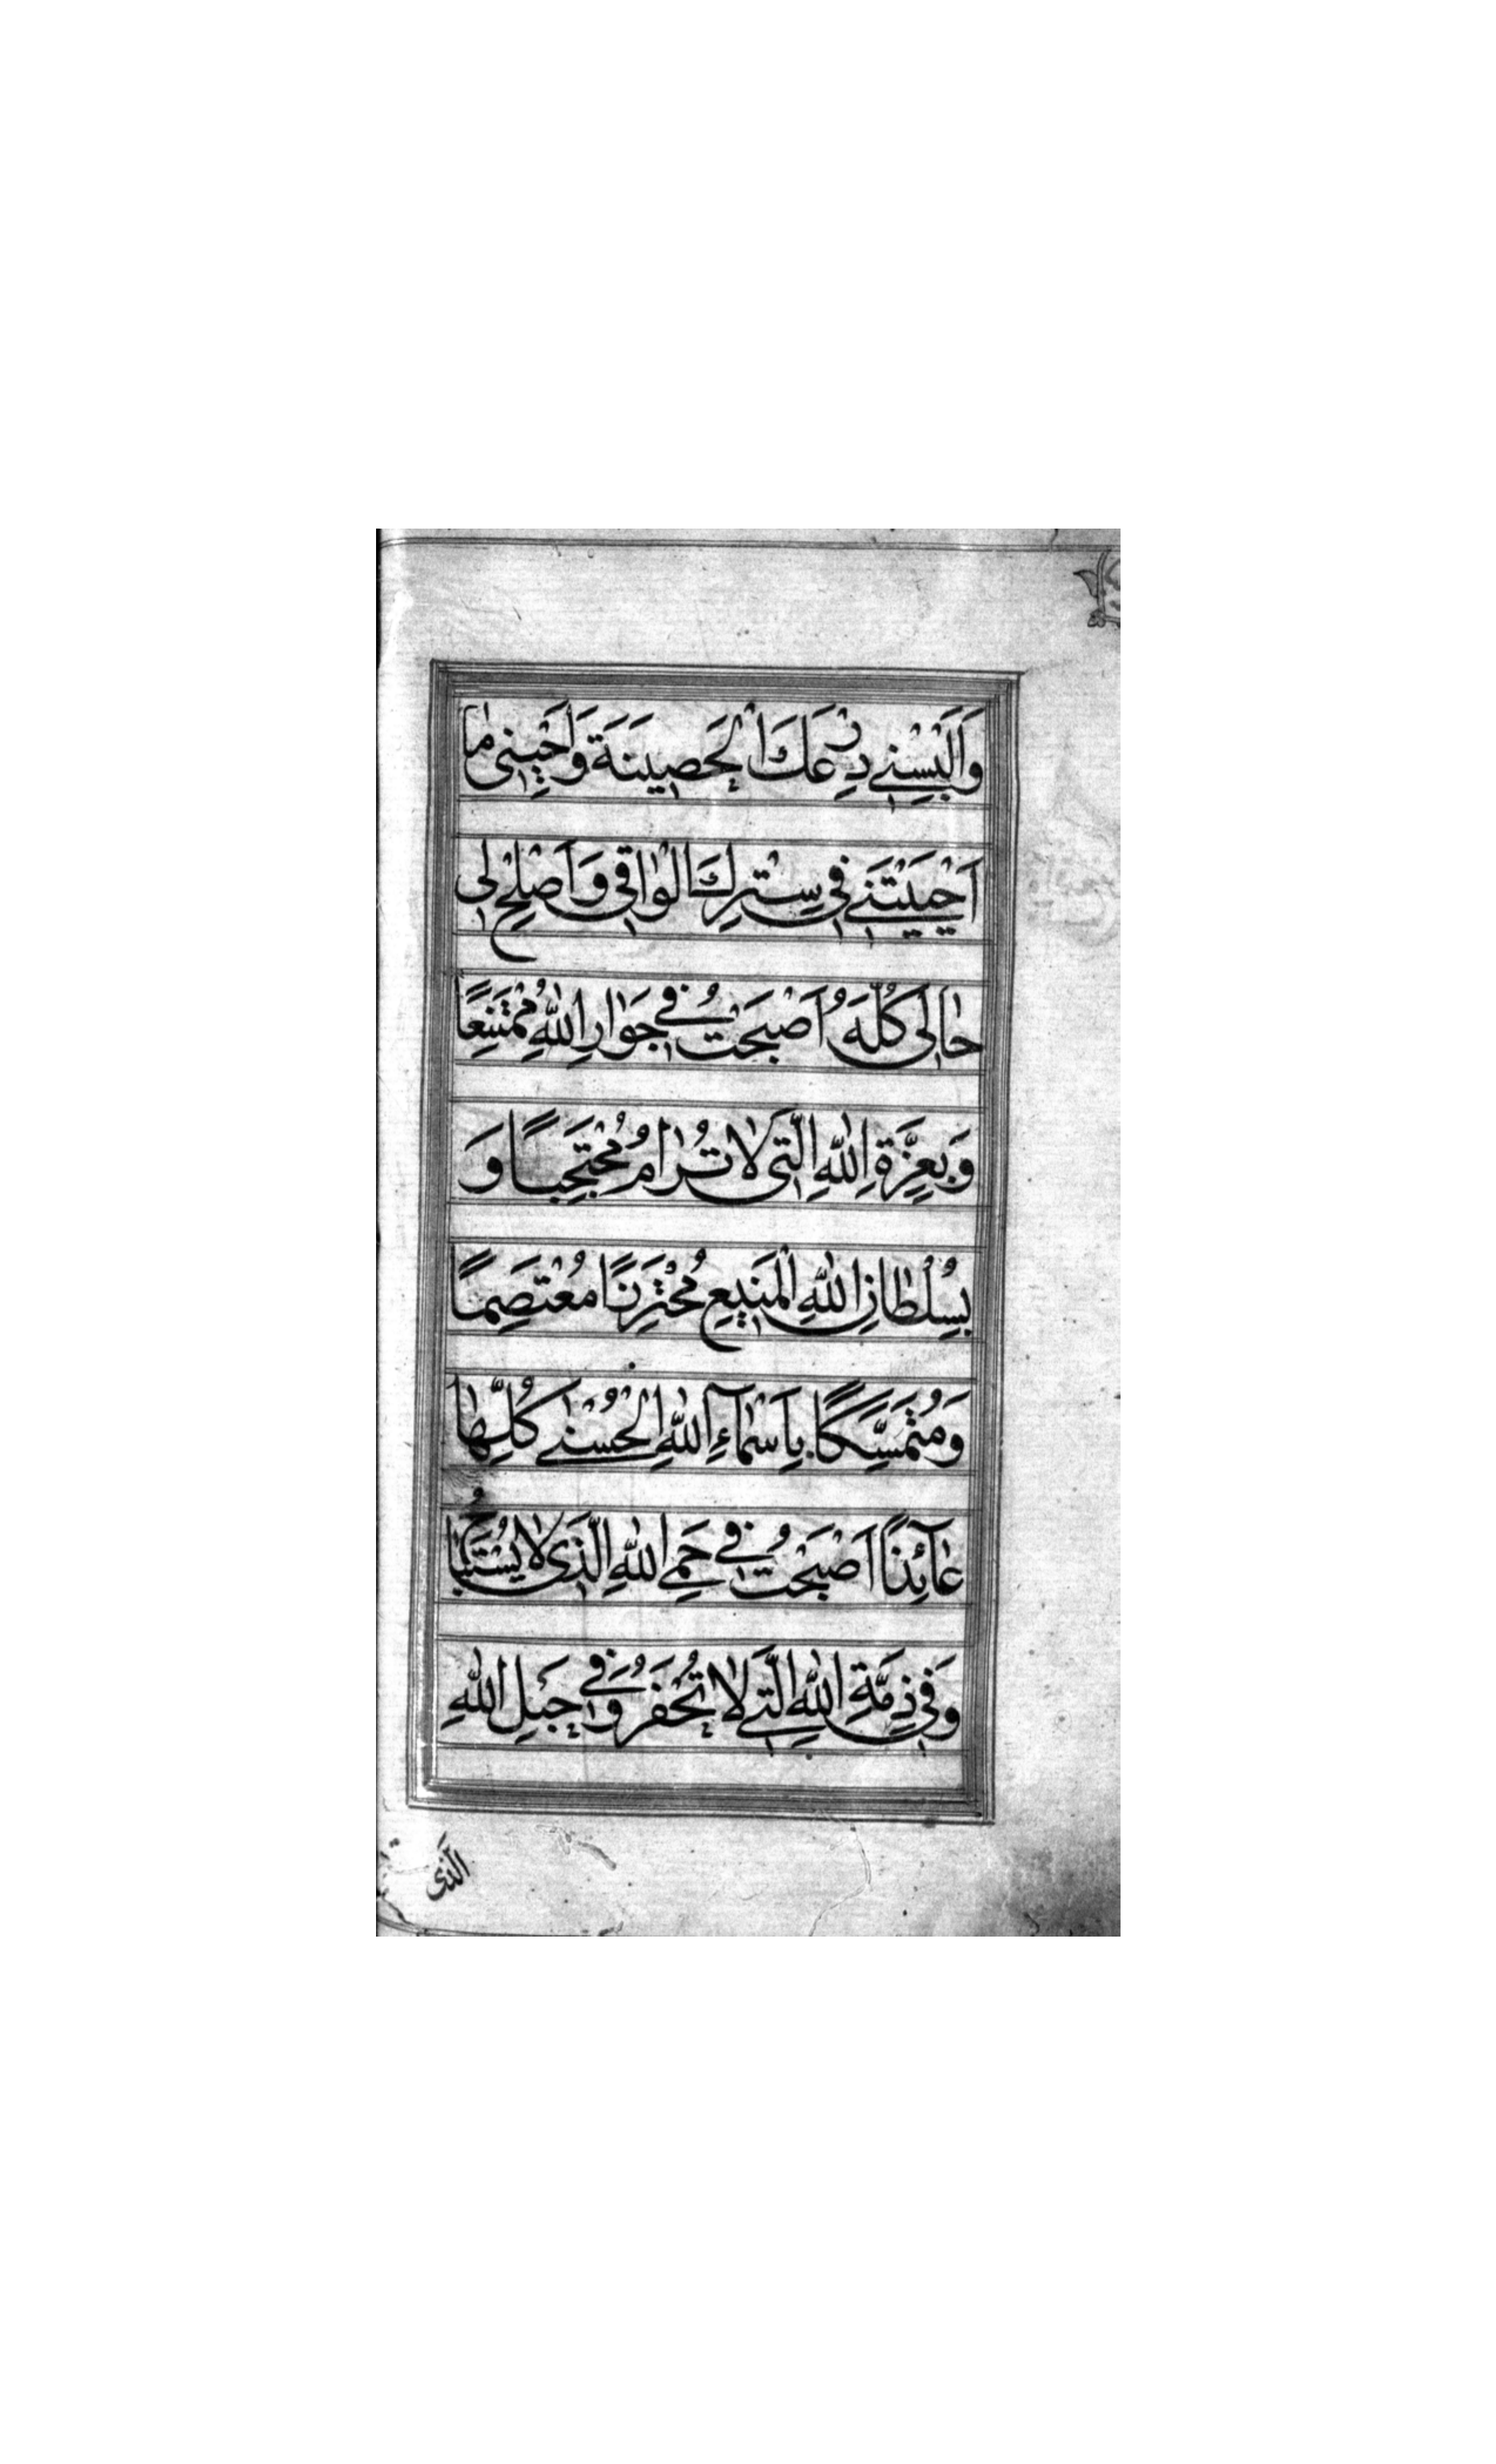 وَاَلْبِسْنِي دِرْعَكَ الْحَصِينَةَ وَاَحْيِنِي مٰا
اَحْيَيْتَنِي فِي سِتْرِكَ الْوٰاقِي وَاَصْلِحْ لِي
حٰالِي كُلَّهَ اَصْبَحْتُ فِي جَوٰارِ اللّٰهِ مُمْتَنِعًا
وَبِعِزَّةِ اللّٰهِ الَّتِي لٰا تُرٰامُ مُحْتَجِبًا وَ
بِسُلْطٰانِ اللّٰهِ الْمَنِيعِ مُحْتَرِزًا مُعْتَصِمًا
وَمُتَمَسِّكًا بِاَسْمٰآءِ اللّٰهِ الْحُسْنٰى كُلِّهٰا
عٰآئِذًا اَصْبَحْتُ فِي حِمَى اللّٰهِ الَّذِي لٰا يُسْتَبٰاحُ
وَفِي ذِمَّةِ اللّٰهِ الَّتِي لٰا تُخْفَرُ وَفِي حَبْلِ اللّٰهِ
الَّذِي